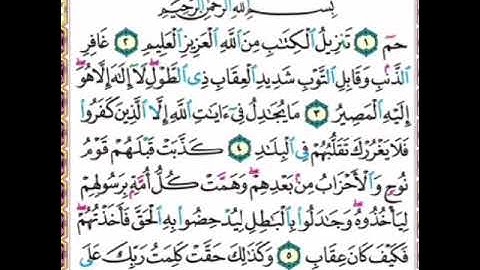 بِسْمِ ٱللَّهِ ٱلرَّحْمَٰنِ ٱلرَّحِيمِ
حمٓ ۝١ تَنزِيلُ ٱلْكِتَٰبِ مِنَ ٱللَّهِ ٱلْعَزِيزِ ٱلْعَلِيمِ ۝٢ غَافِرِ
ٱلذَّنۢبِ وَقَابِلِ ٱلتَّوْبِ شَدِيدِ ٱلْعِقَابِ ذِى ٱلطَّوْلِ ۖ لَآ إِلَٰهَ إِلَّا هُوَ ۖ
إِلَيْهِ ٱلْمَصِيرُ ۝٣ مَا يُجَٰدِلُ فِىٓ ءَايَٰتِ ٱللَّهِ إِلَّا ٱلَّذِينَ كَفَرُوا۟
فَلَا يَغْرُرْكَ تَقَلُّبُهُمْ فِى ٱلْبِلَٰدِ ۝٤ كَذَّبَتْ قَبْلَهُمْ قَوْمُ
نُوحٍ وَٱلْأَحْزَابُ مِنۢ بَعْدِهِمْ ۖ وَهَمَّتْ كُلُّ أُمَّةٍۭ بِرَسُولِهِمْ
لِيَأْخُذُوهُ ۖ وَجَٰدَلُوا۟ بِٱلْبَٰطِلِ لِيُدْحِضُوا۟ بِهِ ٱلْحَقَّ فَأَخَذْتُهُمْ ۖ
فَكَيْفَ كَانَ عِقَابِ ۝٥ وَكَذَٰلِكَ حَقَّتْ كَلِمَتُ رَبِّكَ عَلَى